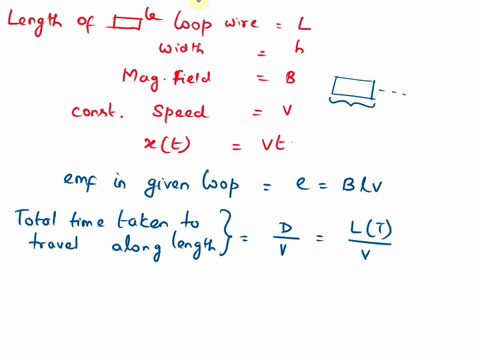 Length of ▭le loop wire = L
width = h
Mag. field = B
const. speed = v
x(t) = vt
emf in given loop = e = Blv
Total time taken to travel along length } = D/v = L(T)/v